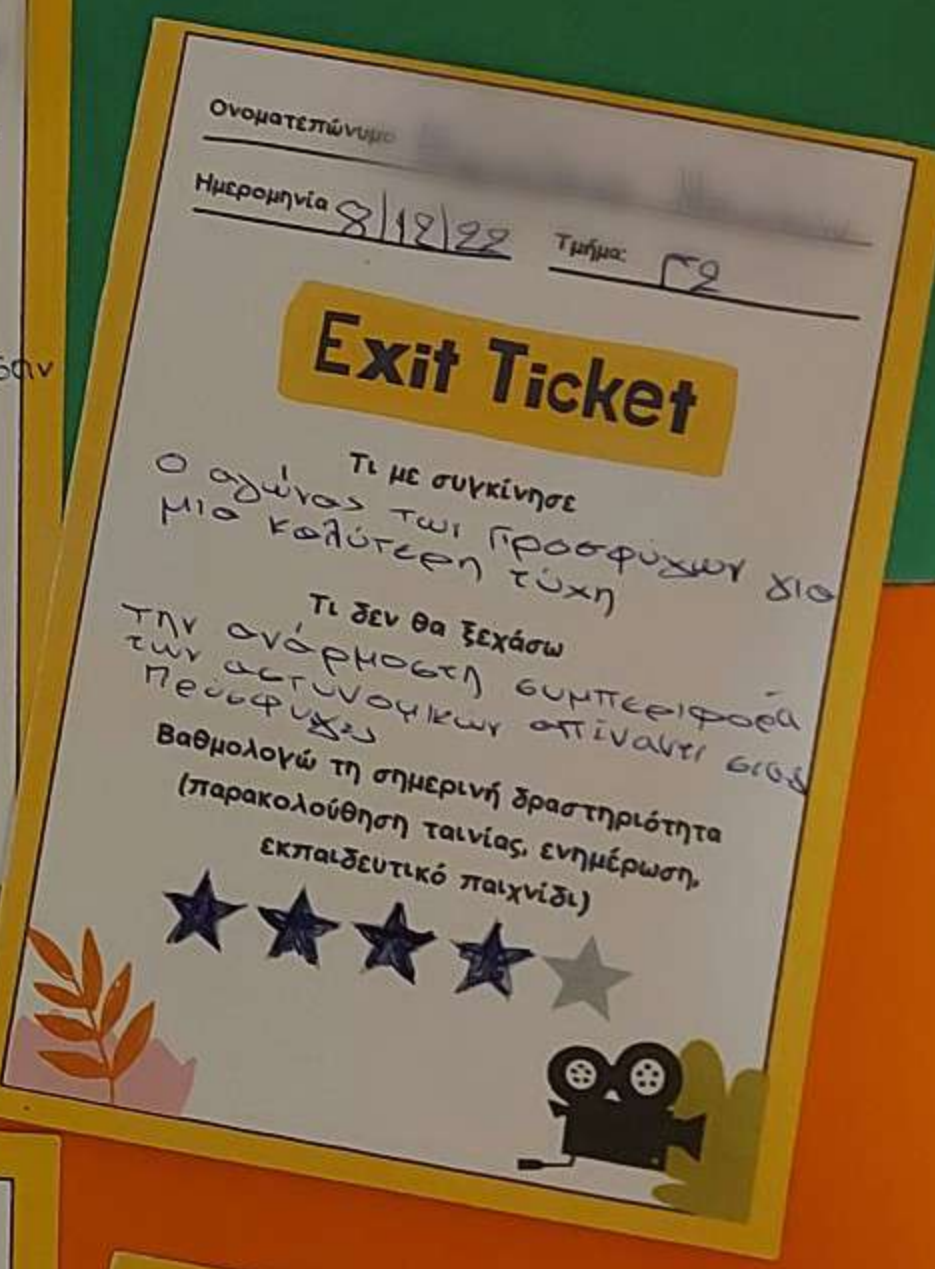 σαν
Ονοματεπώνυμο
Ημερομηνία 8/12/22 Τμήμα: Γ2
Exit Ticket
Τι με συγκίνησε
Ο αγώνας των Προσφύγων για
μια καλύτερη τύχη
Τι δεν θα ξεχάσω
Την ανάρμοστη συμπεριφορά
των αστυνομικών απέναντι στους
Πρόσφυγες
Βαθμολογώ τη σημερινή δραστηριότητα
(παρακολούθηση ταινίας, ενημέρωση,
εκπαιδευτικό παιχνίδι)